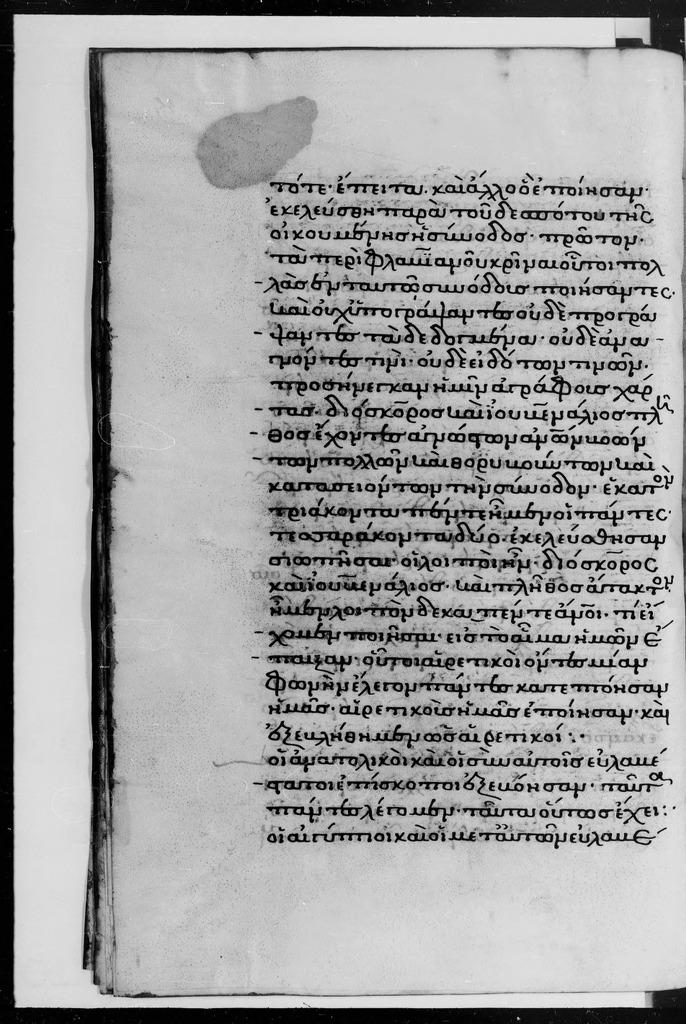 τότε· ἔπειτα. καὶ ἄλλο δὲ ἐποίησαν·
ἐκελεύσθη παρὰ τοῦ δεσπότου τῆς
οἰκουμένης ἡ σύνοδος· πρῶτον.
τὰ περὶ φλαυϊανοῦ κρῖναι οὗτοι πολ
λὰς ἐν ταυτῶ συνόδους ποιήσαντες·
καὶ οὐχ ὑπογράψαντες οὐδὲ προγρά
ψαντες τὰ δεδογμένα· οὐδὲ ἀνα
γνόντες τινὶ· οὐδὲ εἰδότων τινῶν·
προσήνεγκαν ἡμῖν ἀγράφους χάρ
τας. διόσκορος καὶ ἰουβενάλιος πλῆ
θος ἔχοντες ἀγνώστων ἀνθρώπων βοών
των πολλῶν καὶ θορυβούντων καὶ
κατασειόντων τὴν σύνοδον· ἑκατὸν
τριάκοντα πέντε ἦμεν οἱ πάντες·
τεσσαράκοντα δύο ἐκελεύσθησαν
σιωπῆσαι· οἱ λοιποὶ ἦν διόσκορος
καὶ ἰουβενάλιος· καὶ πλῆθος ἄτακτον
ἦμεν λοιπὸν δεκαπέντε ἄνοι. τί εἴ
χομεν ποιῆσαι· εἰς τὸ αἷμα ἡμῶν ἔ
παιξαν· οὗτοι αἱρετικοὶ ὄντες μίαν
φωνὴν ἔλεγον πάντες κατεπτόησαν
ἡμᾶς· αἱρετικοὺς ἡμᾶς ἐποίησαν· καὶ
ἐξεβλήθημεν ὡς αἱρετικοί:·
οἱ ἀνατολικοὶ καὶ οἱ σὺν αὐτοῖς εὐλαβέ
στατοι ἐπίσκοποι ἐξεβόησαν· ταῦτα
πάντες λέγομεν· ταῦτα οὕτως ἔχει:·
οἱ αἰγύπτιοι καὶ οἱ μετ αὐτῶν εὐλαβέ